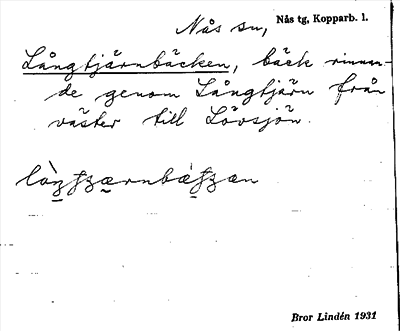 Nås sn, Nås tg, Kopparb. l.
Långtjärnbäcken, bäck rinnan-
de genom Långtjärn från
väster till Lövsjön.
Bror Lindén 1931